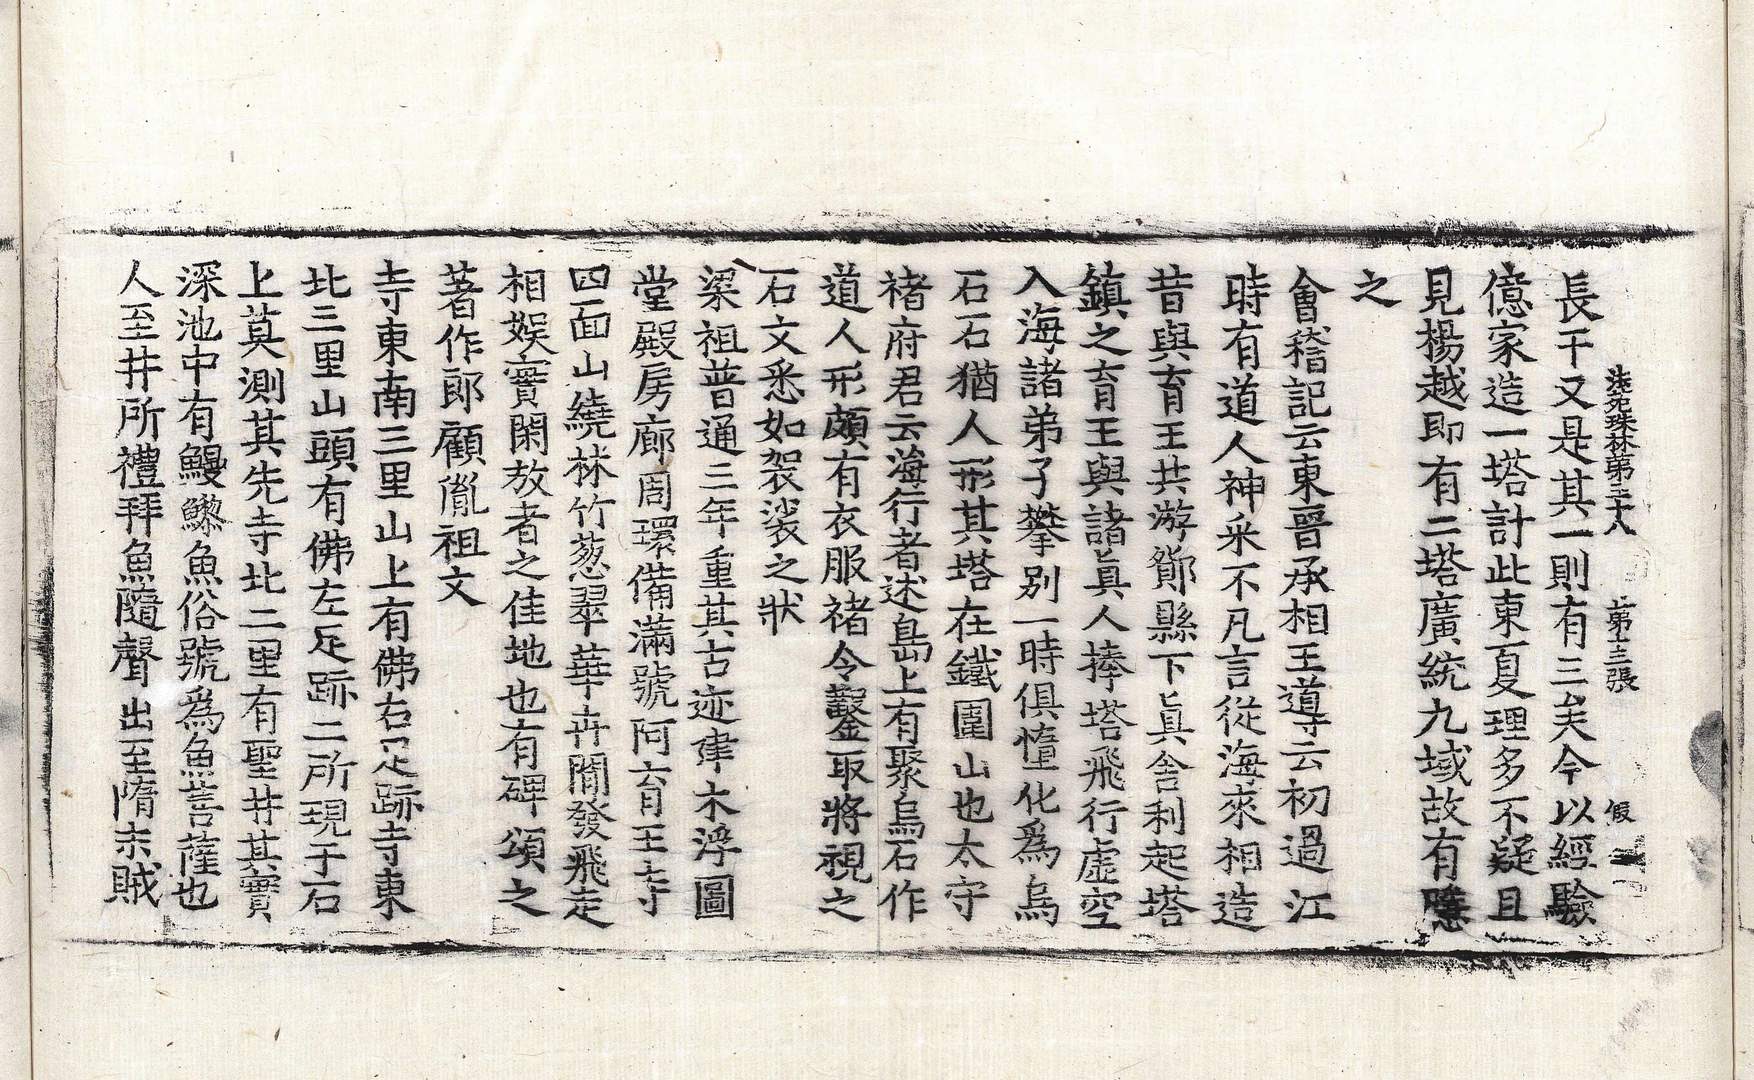 法苑珠林第三十八 第三張 假
長干又是其一則有三矣今以經驗
億家造一塔計此東夏理多不疑且
見楊越即有二塔廣統九域故有
之
會稽記云東晉承相王導云初過江
時有道人神采不凡言從海來相造
昔與育王共游鄮縣下眞舍利起塔
鎮之育王與諸眞人捧塔飛行虛空
入海諸弟子攀別一時俱墮化爲烏
石石猶人形其塔在鐵圍山也太守
褚府君云海行者述島上有聚烏石作
道人形頗有衣服褚令鑿取將視之
石文悉如袈裟之狀
梁祖普通三年重其古迹建木浮圖
堂殿房廊周環備滿號阿育王寺
四面山繞林竹葱翠華卉閒發飛走
相娛實閑放者之佳地也有碑頌之
著作郎顧胤祖文
寺東南三里山上有佛右足跡寺東
北三里山頭有佛左足跡二所現于石
上莫測其先寺北二里有聖井其實
深池中有鰻鱺魚俗號爲魚菩薩也
人至井所禮拜魚隨聲出至隋末賊